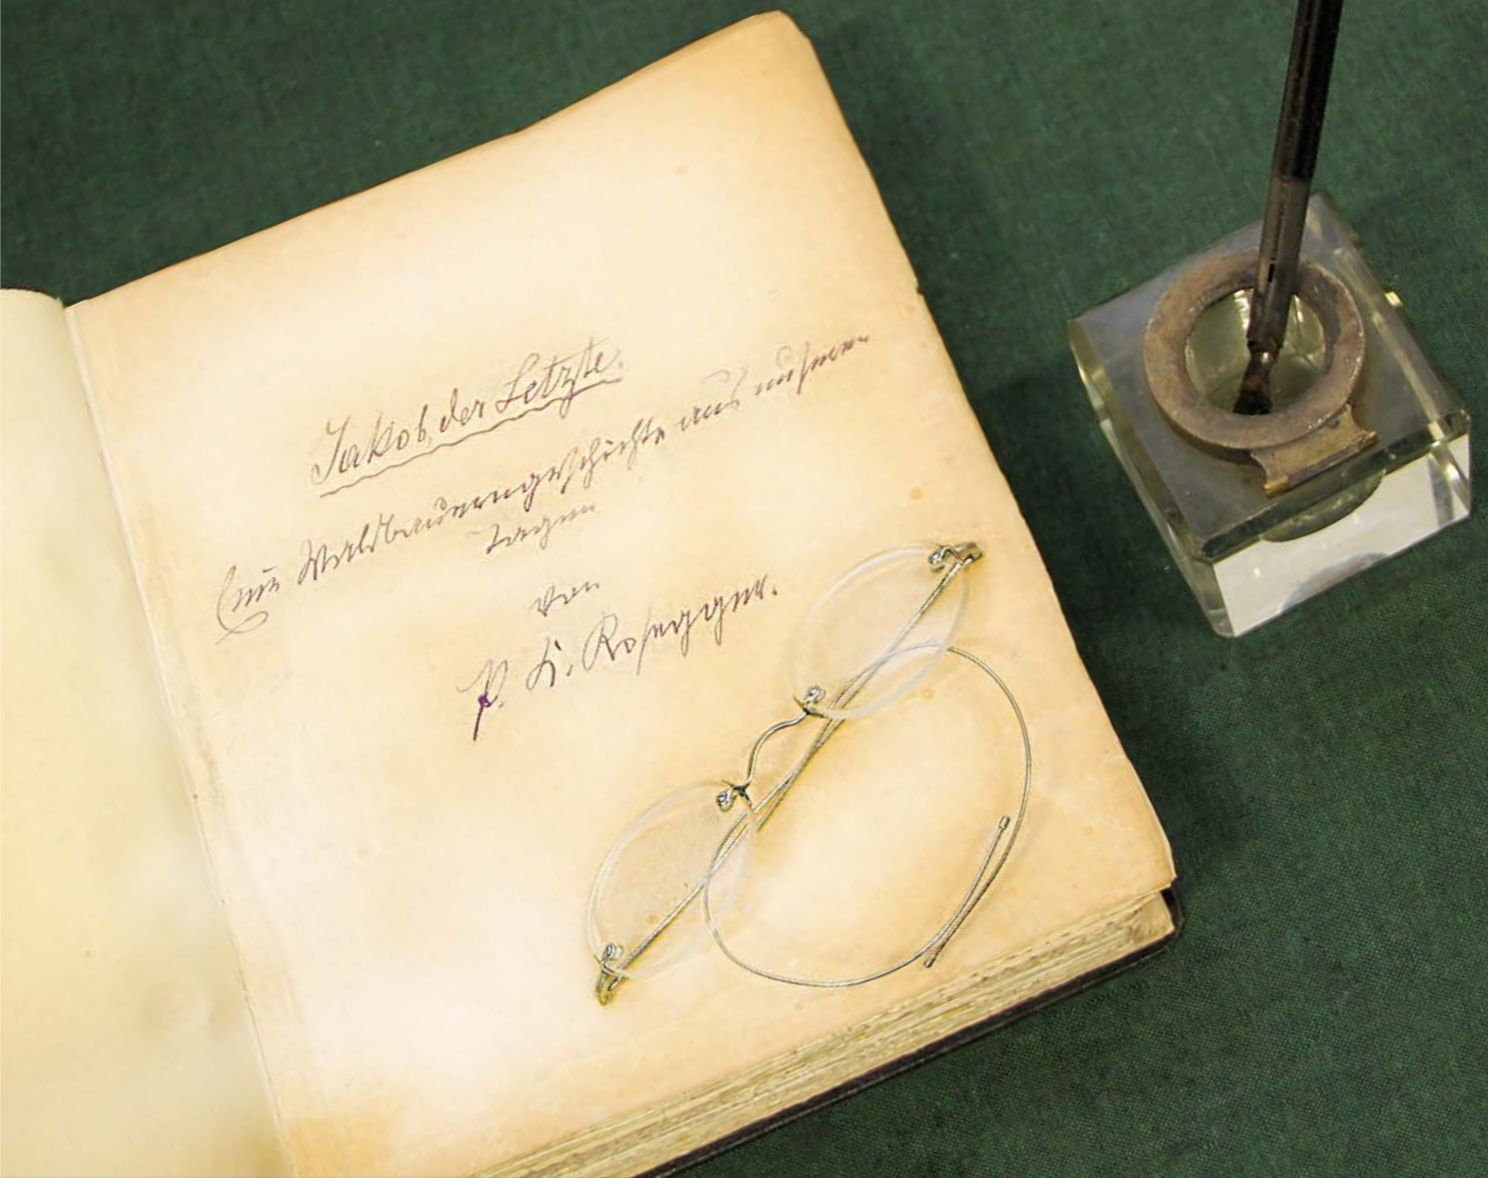 Jakob der Letzte.
Eine Waldbauerngeschichte aus unseren
Tagen
von
P. K. Rosegger.